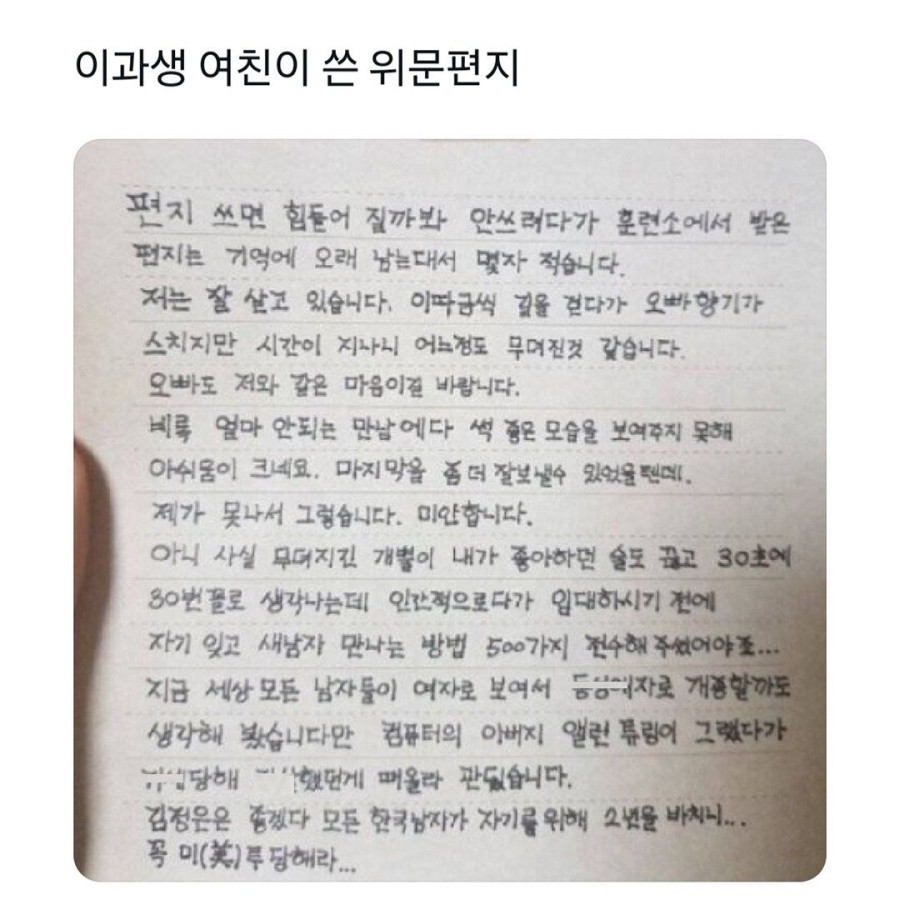 이과생 여친이 쓴 위문편지
편지 쓰면 힘들어 질까봐 안쓰려다가 훈련소에서 받은
편지는 기억에 오래 남는대서 몇자 적습니다.
저는 잘 살고 있습니다. 이따금씩 길을 걷다가 오빠향기가
스치지만 시간이 지나니 어느정도 무뎌진것 같습니다.
오빠도 저와 같은 마음이길 바랍니다.
비록 얼마 안되는 만남에다 썩 좋은 모습을 보여주지 못해
아쉬움이 크네요. 마지막을 좀 더 잘보낼수 있었을텐데.
제가 못나서 그렇습니다. 미안합니다.
아니 사실 무뎌지긴 개뿔이 내가 좋아하던 술도 끊고 30초에
30번꼴로 생각나는데 인간적으로다가 입대하시기 전에
자기 잊고 새남자 만나는 방법 500가지 전수해 주셨어야죠...
지금 세상 모든 남자들이 여자로 보여서 자로 개종할까도
생각해 봤습니다만 컴퓨터의 아버지 앨런 튜링이 그랬다가
당해 했던게 떠올라 관뒀습니다.
김정은은 좋겠다 모든 한국남자가 자기를 위해 2년을 바치니...
꼭 미(美)투 당해라...